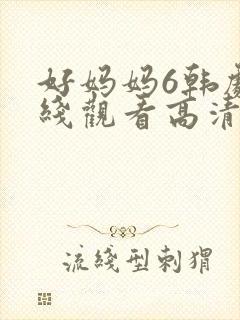 好妈妈6韩剧
綫觀看高清
流綫型刺猬